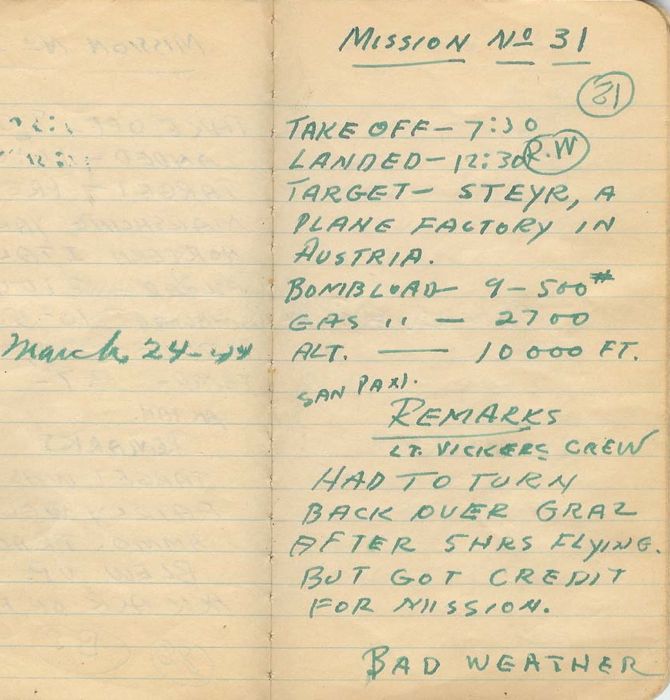 MISSION No 31
31
TAKE OFF - 7:30
LANDED - 12:30 R.W
TARGET - STEYR, A
PLANE FACTORY IN
AUSTRIA.
BOMBLOAD - 9-500#
GAS " - 2700
March 24-44
ALT. — 10000 FT.
SAN PAXI.
REMARKS
LT. VICKERS CREW
HAD TO TURN
BACK OVER GRAZ
AFTER 5 HRS FLYING.
BUT GOT CREDIT
FOR MISSION.
BAD WEATHER